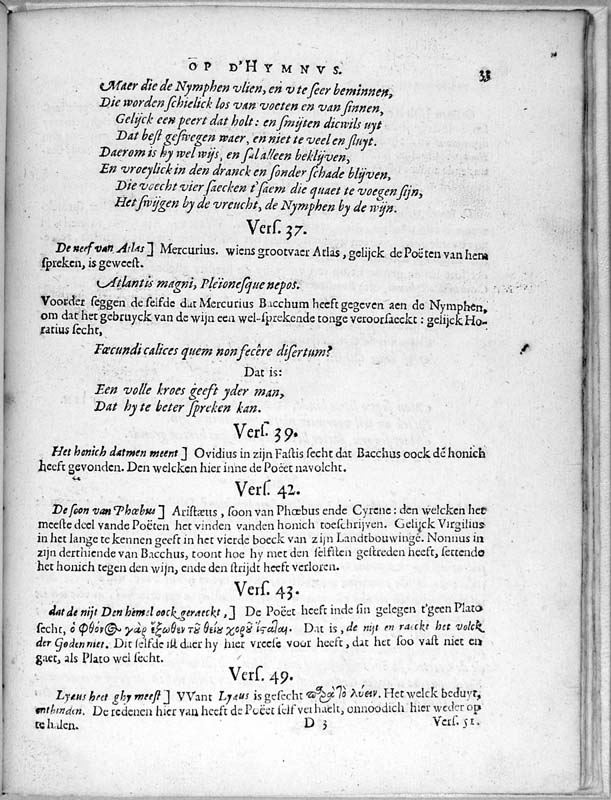 OP D'HYMNVS. 33
Maer die de Nymphen vlien, en v te seer beminnen,
Die worden schielick los van voeten en van sinnen,
Gelijck een peert dat holt: en smijten dicwils uyt
Dat best geswegen waer, en niet te veel en sluyt.
Daerom is hy wel wijs, en sal alleen beklijven,
En vroeylick in den dranck en sonder schade blijven,
Die voecht vier saecken t'saem die quaet te voegen sijn,
Het swijgen by de vreucht, de Nymphen by de wijn.
Vers. 37.
De neef van Atlas] Mercurius. wiens grootvaer Atlas, gelijck de Poëten van hem
spreken, is geweest.
Atlantis magni, Pleïonesque nepos.
Voorder seggen de selfde dat Mercurius Bacchum heeft gegeven aen de Nymphen,
om dat het gebruyck van de wijn een wel-sprekende tonge veroorsaeckt: gelijck Ho-
ratius secht,
Fœcundi calices quem non fecêre disertum?
Dat is:
Een volle kroes geeft yder man,
Dat hy te beter spreken kan.
Vers. 39.
Het honich datmen meent] Ovidius in zijn Fastis secht dat Bacchus oock dē honich
heeft gevonden. Den welcken hier inne de Poëet navolcht.
Vers. 42.
De soon van Phœbus] Aristæus, soon van Phœbus ende Cyrene: den welcken het
meeste deel vande Poëten het vinden vanden honich toeschrijven. Gelijck Virgilius
in het lange te kennen geeft in het vierde boeck van zijn Landtbouwingē. Nonnus in
zijn derthiende van Bacchus, toont hoe hy met den selfsten gestreden heeft, settende
het honich tegen den wijn, ende den strijdt heeft verloren.
Vers. 43.
dat de nijt Den hemel oock geraeckt,] De Poëet heeft inde sin gelegen t'geen Plato
secht, ὁ φθόνος γὰρ ἔξωθεν τοῦ θείου χοροῦ ἵσταται. Dat is, de nijt en raeckt het volck
der Goden niet. Dit selfde ist daer hy hier vreese voor heeft, dat het soo vast niet en
gaet, als Plato wel secht.
Vers. 49.
Lyæus heet ghy meest] VVant Lyæus is gesecht παρὰ τὸ λύειν. Het welck beduyt,
onthinden. De redenen hier van heeft de Poëet self verhaelt, onnoodich hier weder op
te halen. D 3 Vers. 51.